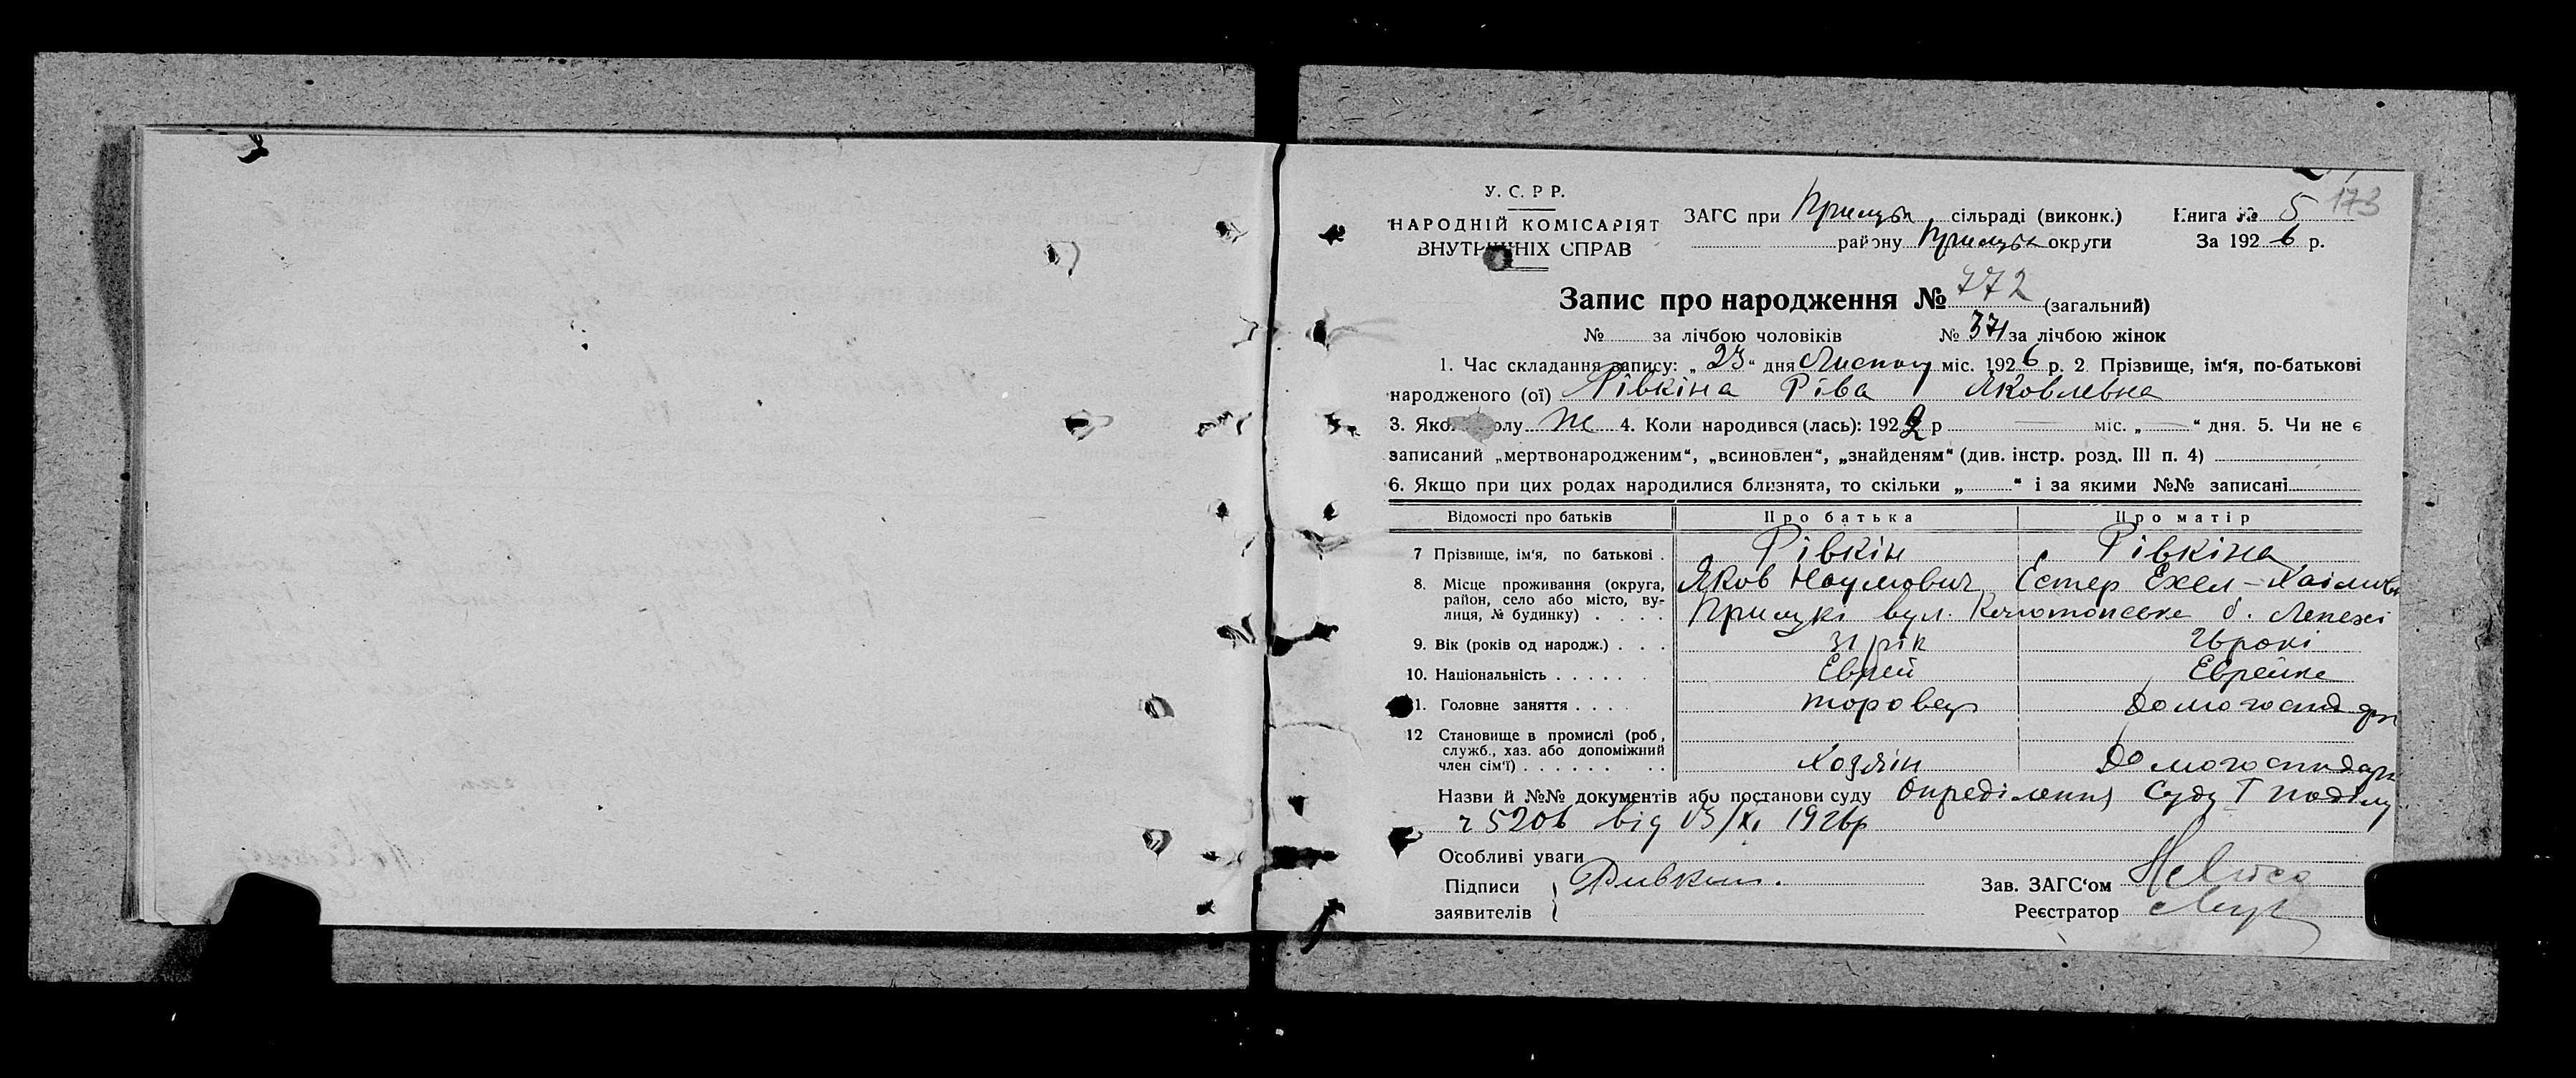 173
У. С. Р Р.
НАРОДНІЙ КОМІСАРІЯТ
ВНУТРІШНІХ СПРАВ
ЗАГС при Прилуцьк сільраді (виконк.)
району Прилуцьк округи
Книга № 5
За 1926 р.
Запис про народження № 772 (загальний)
№ за лічбою чоловіків № 371 за лічбою жінок
1. Час складання запису: „23“ дня Листоп. міс. 1926 р. 2. Прізвище, ім'я, по-батькові
народженого (ої) Рівкіна Ріва Яковлевна
3. Якого полу Ж 4. Коли народився (лась): 1922 р — міс. „—“ дня. 5. Чи не є
записаний „мертвонародженим“, „всиновлен“, „знайденям“ (див. інстр. розд. III п. 4)
6. Якщо при цих родах народилися близнята, то скільки „ “ і за якими №№ записані
Відомості про батьків Про батька Про матір
7 Прізвище, ім'я, по батькові . Рівкін Рівкіна
8. Місце проживання (округа, район, село або місто, вулиця, № будинку) . . . . Яков Наумович Естер Ехел-Хаімовн
Прилукі вул. Конотопська б. Лепехі
9. Вік (років од народж.) . . . 31 рік 26 рокі
10. Національність . . . . . . Еврей Еврейка
11. Головне заняття . . . . торовец Домогосподар
12 Становище в промислі (роб, служб., хаз. або допоміжний член сім'ї) . . . . . . . . Хозяїн Домогосподарк
Назви й №№ документів або постанови суду Опреділення Суду I поділу
ч 5206 від 15/XI 1926р
Особливі уваги
Підписи заявителів Ривкин.
Зав. ЗАГС'ом
Реєстратор